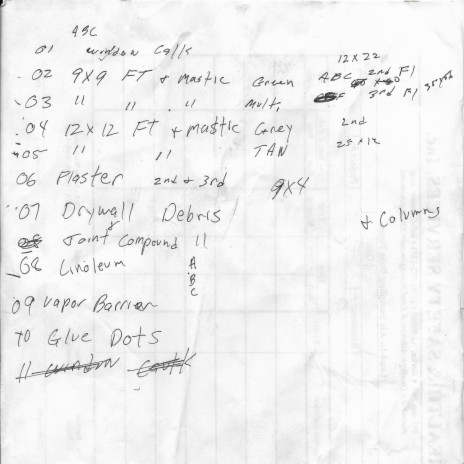 ABC
01 window Calk
12 x 22
02 9x9 FT & Mastic Green ABC 2nd Fl
03 " " " " Mult. 3rd Fl
04 12x12 FT & Mastic Grey 2nd
05 " " TAN 25 x 12
06 Plaster 2nd & 3rd 9x4
07 Drywall Debris & Columns
& Joint Compound "
08 Linoleum A
B
C
09 Vapor Barrier
10 Glue Dots
11 window Caulk